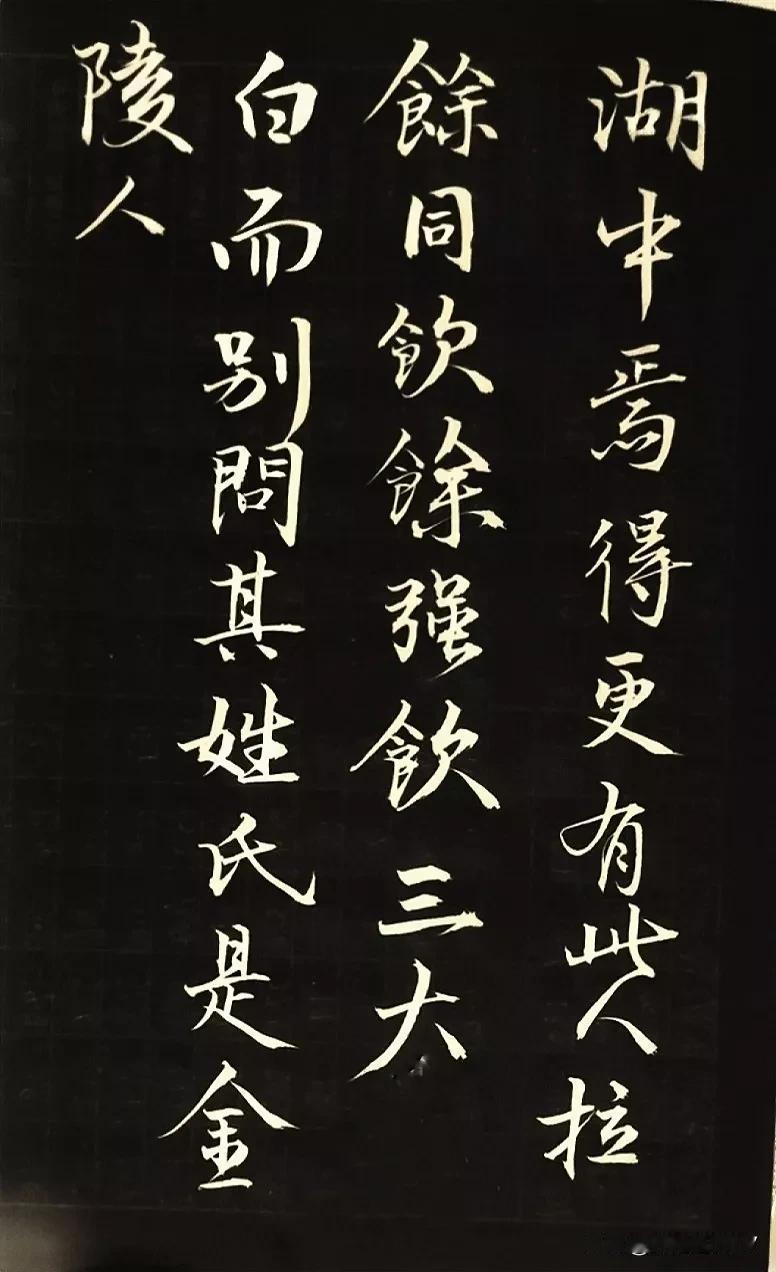 湖中焉得更有此人拉
餘同飲餘强飲三大
白而别問其姓氏是金
陵人